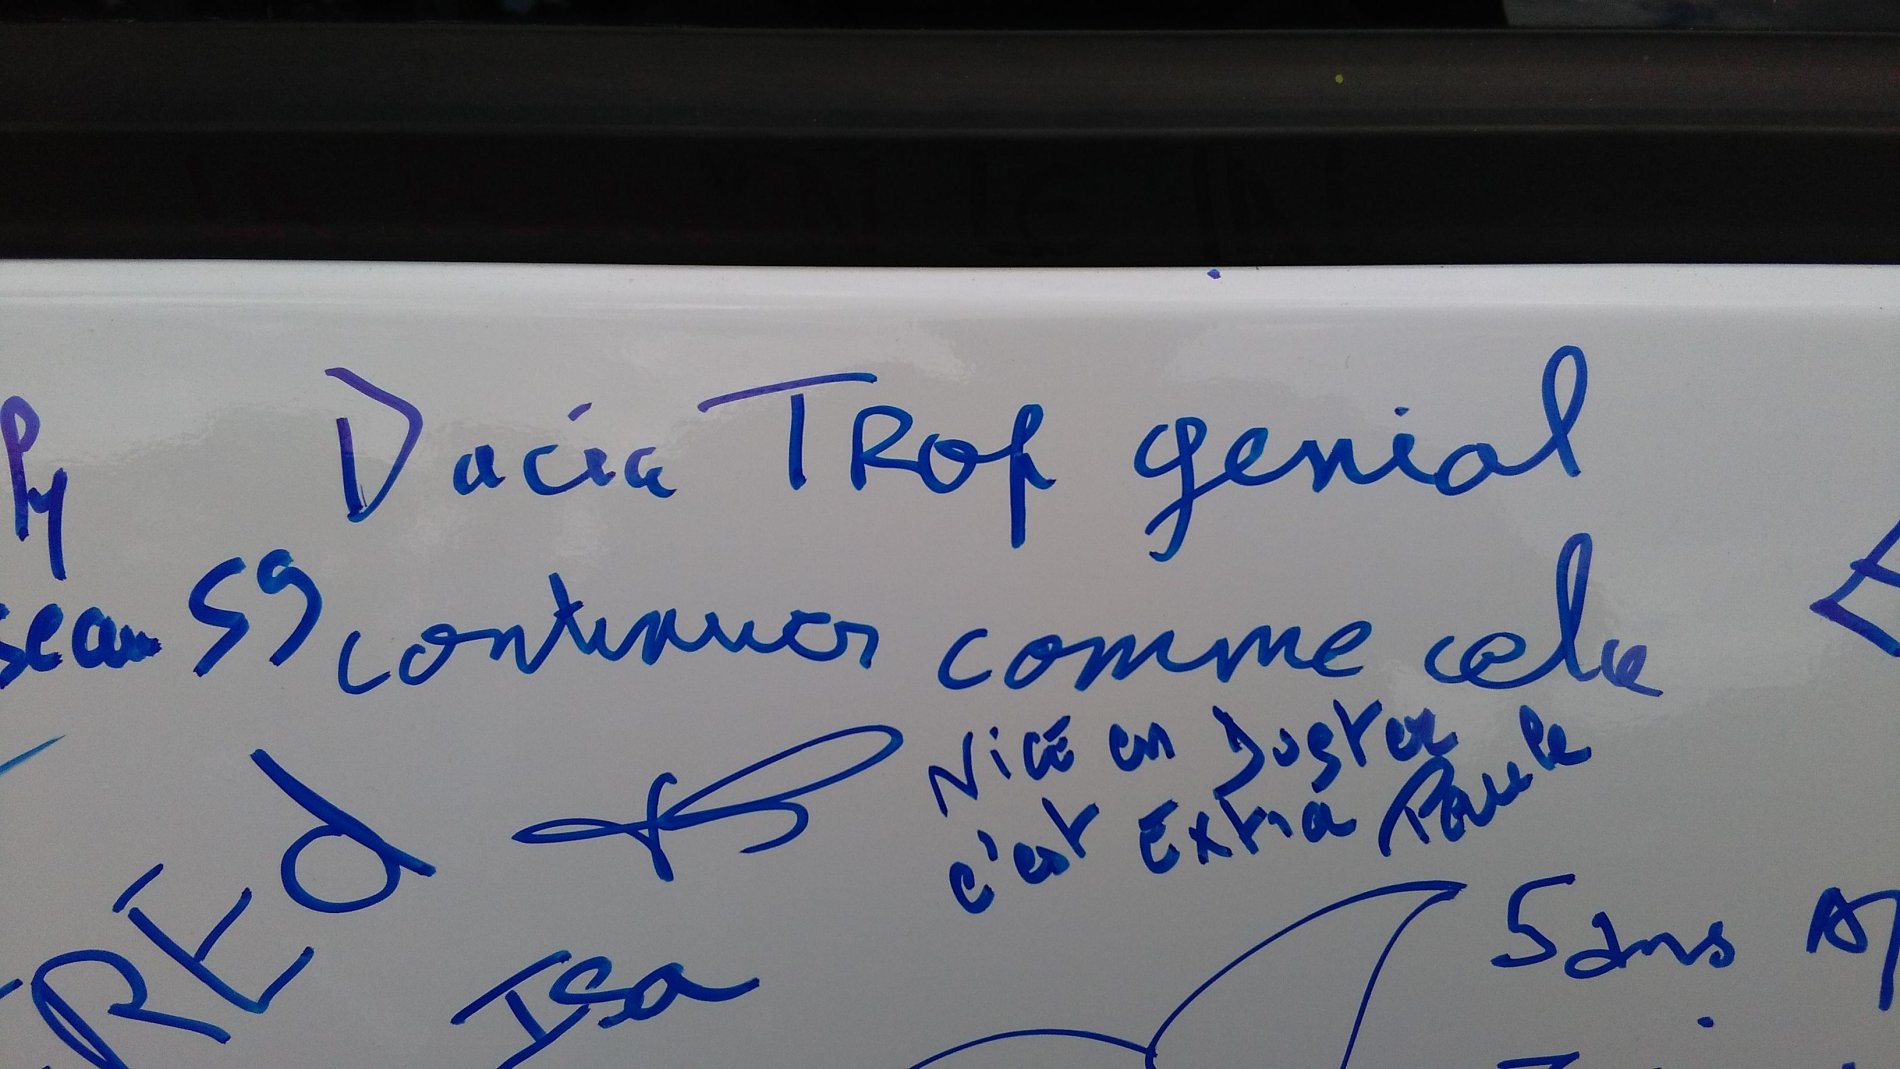 Py
Dacia TROP genial
59
continuer comme cela
Nice en Duster
c'est Extra Paule
REd
Isa
Sans